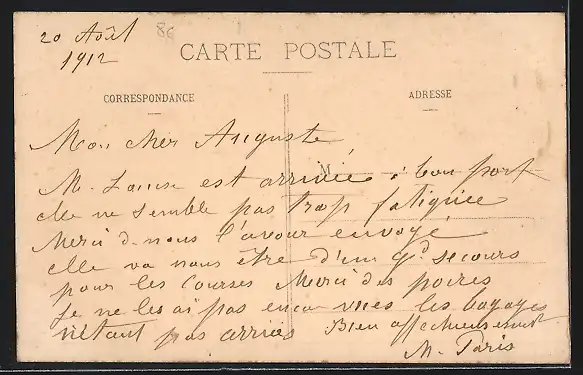 20 Août
1912
86
CARTE POSTALE
CORRESPONDANCE
ADRESSE
Mon cher Auguste
M
M. Louise est arrivée à bon port
elle ne semble pas trop fatiguée
Merci de nous l'avoir envoyé
elle va nous être d'un gd secours
pour les courses Merci des poires
je ne les ai pas encor vues les bagages
n'étant pas arrivés Bien affectueusement
M. Paris